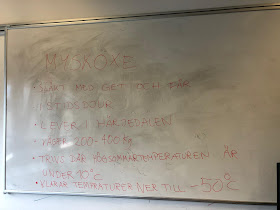 MYSKOXE
• SLÄKT MED GET OCH FÅR
ISTIDSDJUR
• LEVER I HÄRJEDALEN
• VÄGER 200-400 KG
• TRIVS DÄR HÖGSOMMARTEMPERATUREN ÄR
UNDER 10°C
• KLARAR TEMPERATURER NER TILL -50°C